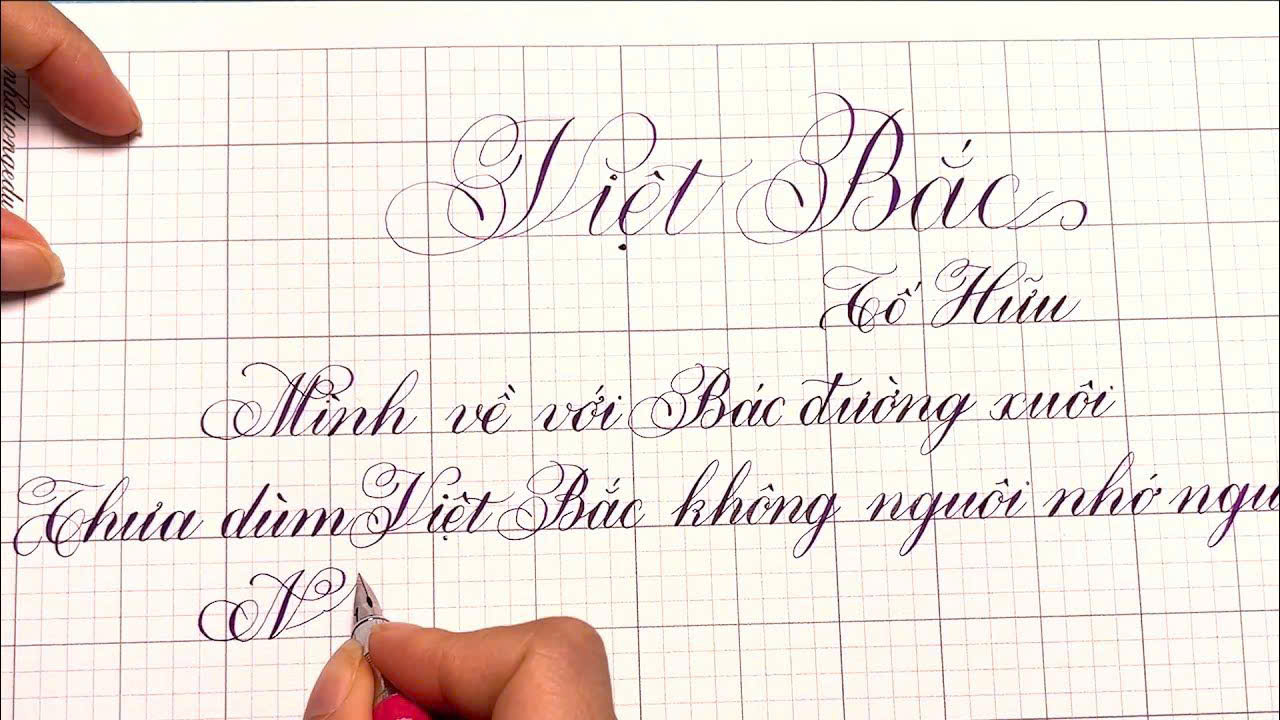 Việt Bắc
Tố Hữu
Mình về với Bác đường xuôi
Thưa dùm Việt Bắc không nguôi nhớ ngư
N